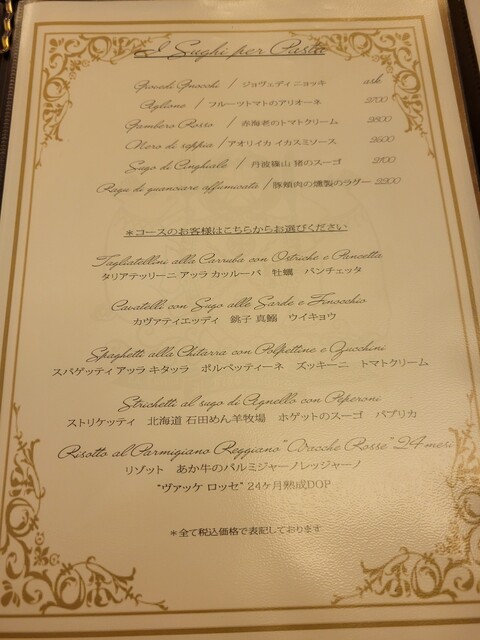 I Sughi per Pasta
Giovedi Gnocchi / ジョヴェディ ニョッキ ask
Aglione / フルーツトマトのアリオーネ 2700
Gambero Rosso / 赤海老のトマトクリーム 2800
Nero di seppia / アオリイカ イカスミソース 2600
Sugo di Cinghiale / 丹波篠山 猪のスーゴ 2700
Ragu di guanciare affumicata / 豚頬肉の燻製のラグー 2200
＊コースのお客様はこちらからお選びください
Tagliatellini alla Carruba con Ostriche e Pancetta
タリアテッリーニ アッラ カッルーバ 牡蠣 パンチェッタ
Cavatelli con Sugo alle Sarde e Finocchio
カヴァティエッディ 銚子 真鰯 ウイキョウ
Spaghetti alla Chitarra con Polpettine e Zucchini
スパゲッティ アッラ キタッラ ポルペッティーネ ズッキーニ トマトクリーム
Strichetti al sugo di Agnello con Peperoni
ストリケッティ 北海道 石田めん羊牧場 ホゲットのスーゴ パプリカ
Risotto al Parmigiano Reggiano "Vacche Rosse" 24 mesi
リゾット あか牛のパルミジャーノレッジャーノ
"ヴァッケ ロッセ" 24ケ月熟成DOP
＊全て税込価格で表記しております